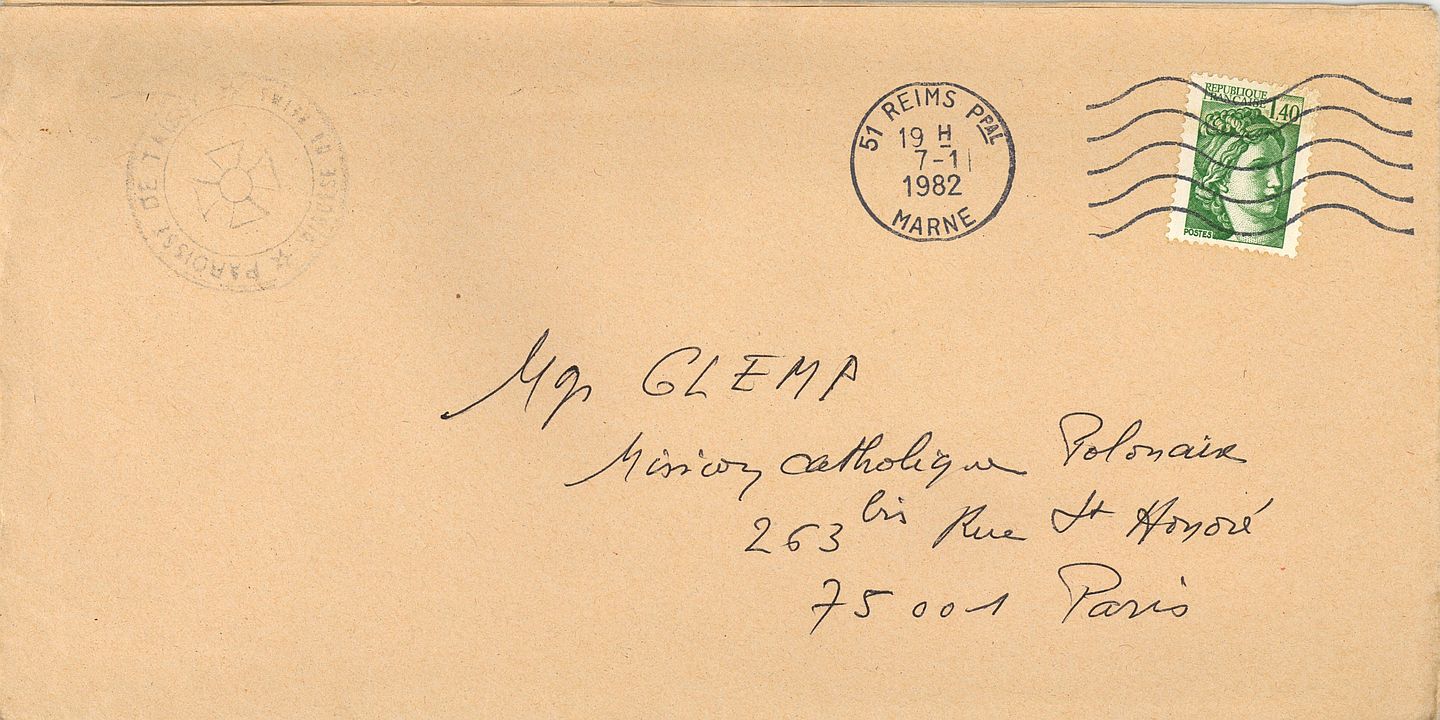 PAROISSE DE
51 REIMS PPAL
19 H
7-1
1982
MARNE
REPUBLIQUE
FRANÇAISE
1,40
POSTES
Mgr GLEMP
Mission catholique Polonaise
263 bis Rue St Honoré
75001 Paris